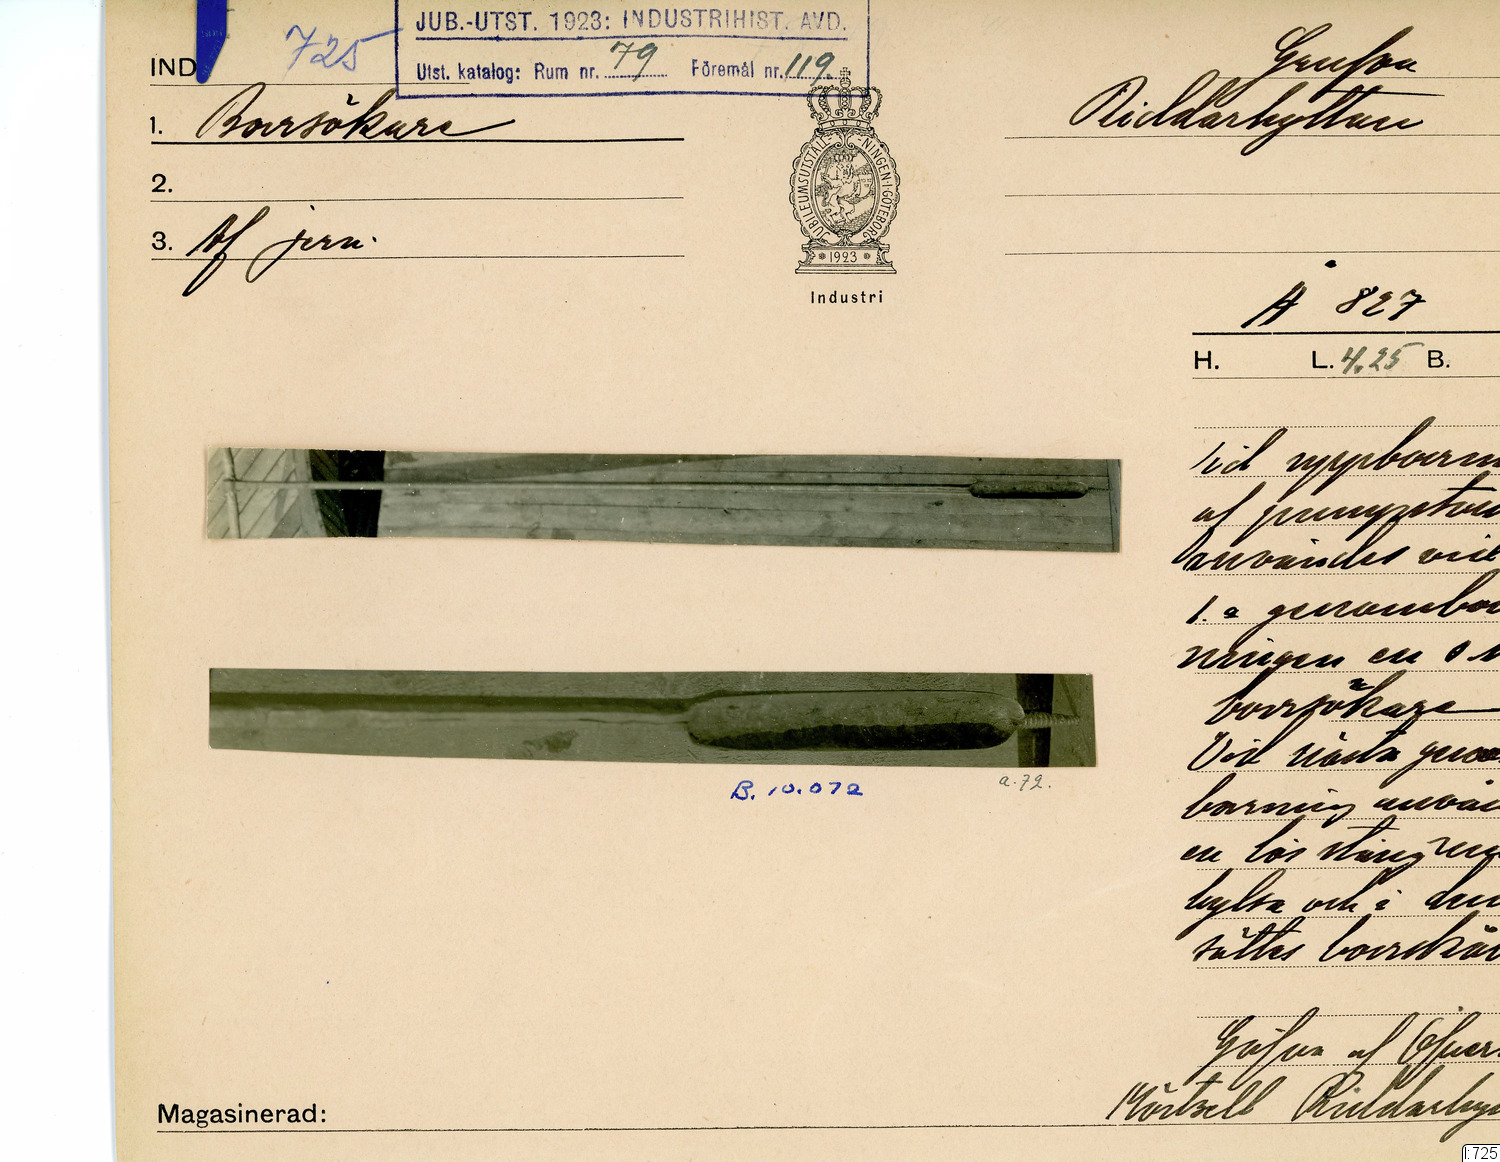 JUB.-UTST. 1923: INDUSTRIHIST. AVD.
Utst. katalog: Rum nr. 79 Föremål nr. 119
725
IND
1. Borrsökare
2.
3. Af jern.
JUBILEUMSUTSTÄLLNINGEN I GÖTEBORG
1923
Industri
Riddarhyttan
Å 827
H. L. 4,25 B.
Vid uppborrn
af pumpstoc
användes vid
1.a genombor
ningen en s k
borrsökare
Vid nästa geno
borrning anvä
en lös stång m
hylsa och i den
sättes borrskär
B. 10.072
a.72.
Gåfva af
Riddarhy
Magasinerad:
I:725